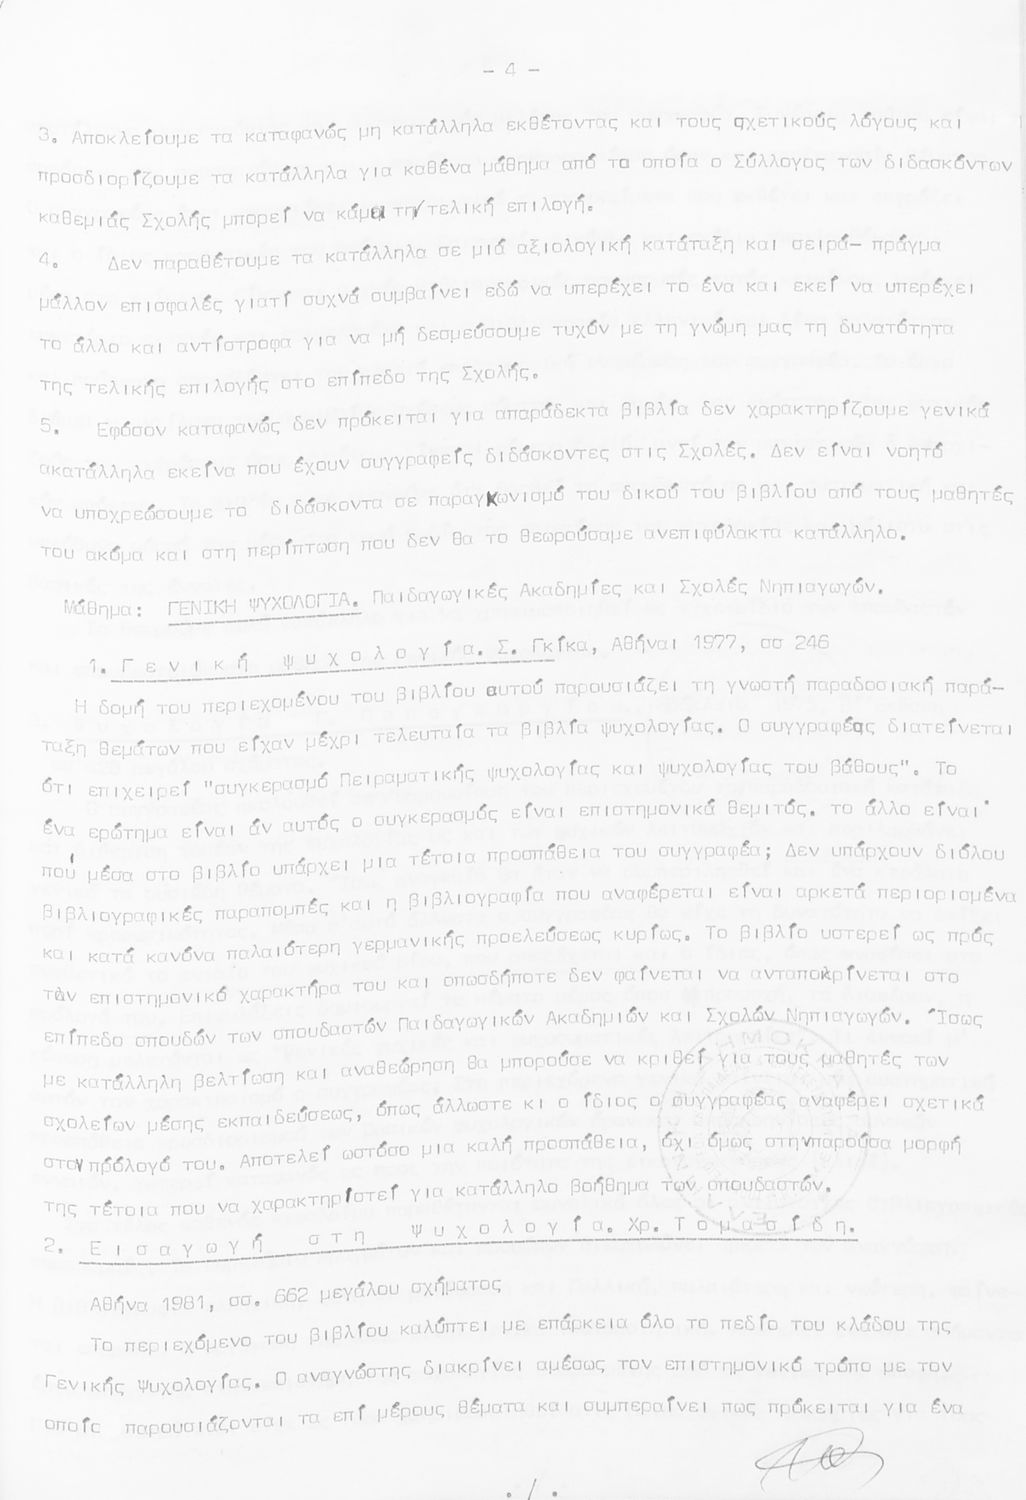 - 4 -
3. Αποκλείουμε τα καταφανώς μη κατάλληλα εκθέτοντας και τους σχετικούς λόγους και
προσδιορίζουμε τα κατάλληλα για καθένα μάθημα από τα οποία ο Σύλλογος των διδασκόντων
καθεμιάς Σχολής μπορεί να κάμει τη τελική επιλογή.
4. Δεν παραθέτουμε τα κατάλληλα σε μιά αξιολογική κατάταξη και σειρά- πράγμα
μάλλον επισφαλές γιατί συχνά συμβαίνει εδώ να υπερέχει το ένα και εκεί να υπερέχει
το άλλο και αντίστροφα για να μή δεσμεύσουμε τυχόν με τη γνώμη μας τη δυνατότητα
της τελικής επιλογής στο επίπεδο της Σχολής.
5. Εφόσον καταφανώς δεν πρόκειται για απαράδεκτα βιβλία δεν χαρακτηρίζουμε γενικά
ακατάλληλα εκείνα που έχουν συγγραφείς διδάσκοντες στις Σχολές. Δεν είναι νοητό
να υποχρεώσουμε το διδάσκοντα σε παραγκωνισμό του δικού του βιβλίου από τους μαθητές
του ακόμα και στη περίπτωση που δεν θα το θεωρούσαμε ανεπιφύλακτα κατάλληλο.
Μάθημα: ΓΕΝΙΚΗ ΨΥΧΟΛΟΓΙΑ. Παιδαγωγικές Ακαδημίες και Σχολές Νηπιαγωγών.
1. Γ ε ν ι κ ή ψ υ χ ο λ ο γ ί α. Σ. Γκίκα, Αθήναι 1977, σσ 246
Η δομή του περιεχομένου του βιβλίου αυτού παρουσιάζει τη γνωστή παραδοσιακή παρά-
ταξη θεμάτων που είχαν μέχρι τελευταία τα βιβλία ψυχολογίας. Ο συγγραφέας διατείνεται
ότι επιχειρεί "συγκερασμό Πειραματικής ψυχολογίας και ψυχολογίας του βάθους". Το
ένα ερώτημα είναι άν αυτός ο συγκερασμός είναι επιστημονικά θεμιτός. το άλλο είναι
πού μέσα στο βιβλίο υπάρχει μια τέτοια προσπάθεια του συγγραφέα; Δεν υπάρχουν διόλου
βιβλιογραφικές παραπομπές και η βιβλιογραφία που αναφέρεται είναι αρκετά περιορισμένα
και κατά κανόνα παλαιότερη γερμανικής προελεύσεως κυρίως. Το βιβλίο υστερεί ως πρός
τὸν επιστημονικό χαρακτήρα του και οπωσδήποτε δεν φαίνεται να ανταποκρίνεται στο
επίπεδο σπουδών των σπουδαστών Παιδαγωγικών Ακαδημιών και Σχολών Νηπιαγωγών. Ίσως
με κατάλληλη βελτίωση και αναθεώρηση θα μπορούσε να κριθεί για τους μαθητές των
σχολείων μέσης εκπαιδεύσεως, όπως άλλωστε κι ο ίδιος ο συγγραφέας αναφέρει σχετικά
στον πρόλογό του. Αποτελεί ωστόσο μια καλή προσπάθεια, όχι όμως στην παρούσα μορφή
της τέτοια που να χαρακτηριστεί για κατάλληλο βοήθημα των σπουδαστών.
2. Ε ι σ α γ ω γ ή σ τ η ψ υ χ ο λ ο γ ί α. Χρ. Τ ο μ α σ ί δ η.
Αθήνα 1981, σσ. 662 μεγάλου σχήματος
Το περιεχόμενο του βιβλίου καλύπτει με επάρκεια όλο το πεδίο του κλάδου της
Γενικής Ψυχολογίας. Ο αναγνώστης διακρίνει αμέσως τον επιστημονικό τρόπο με τον
οποίο παρουσιάζονται τα επί μέρους θέματα και συμπεραίνει πως πρόκειται για ένα
./.